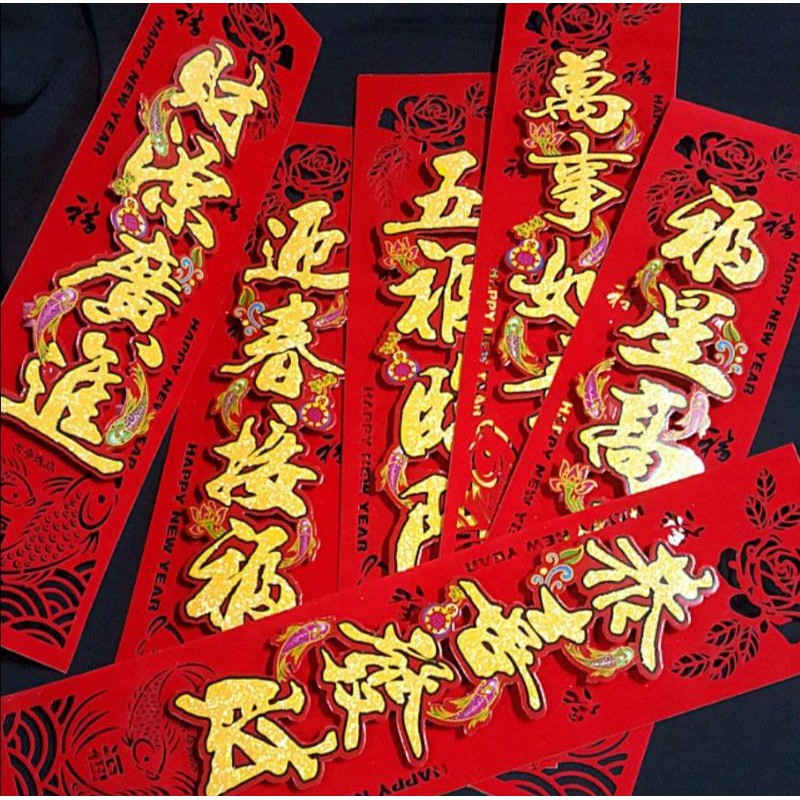 財源廣進
HAPPY NEW YEAR
HAPPY NEW YEAR
迎春接福
HAPPY NEW YEAR
五福臨門
HAPPY NEW YEAR
萬事如意
HAPPY
HAPPY NEW YEAR
福星高
HAPPY NEW YEAR
恭喜發財
HAPPY NEW YEAR
HAPPY NEW YEAR
福